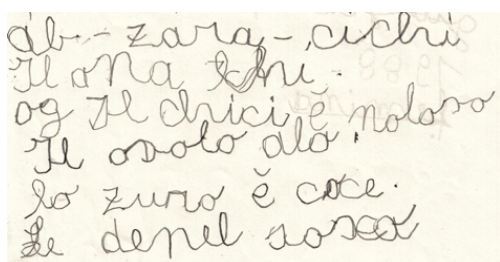 ab - zara - cichi
Il ona chi.
og Il chici è noloso
Il osolo alo.
lo zuno è coce.
Le denel sosco